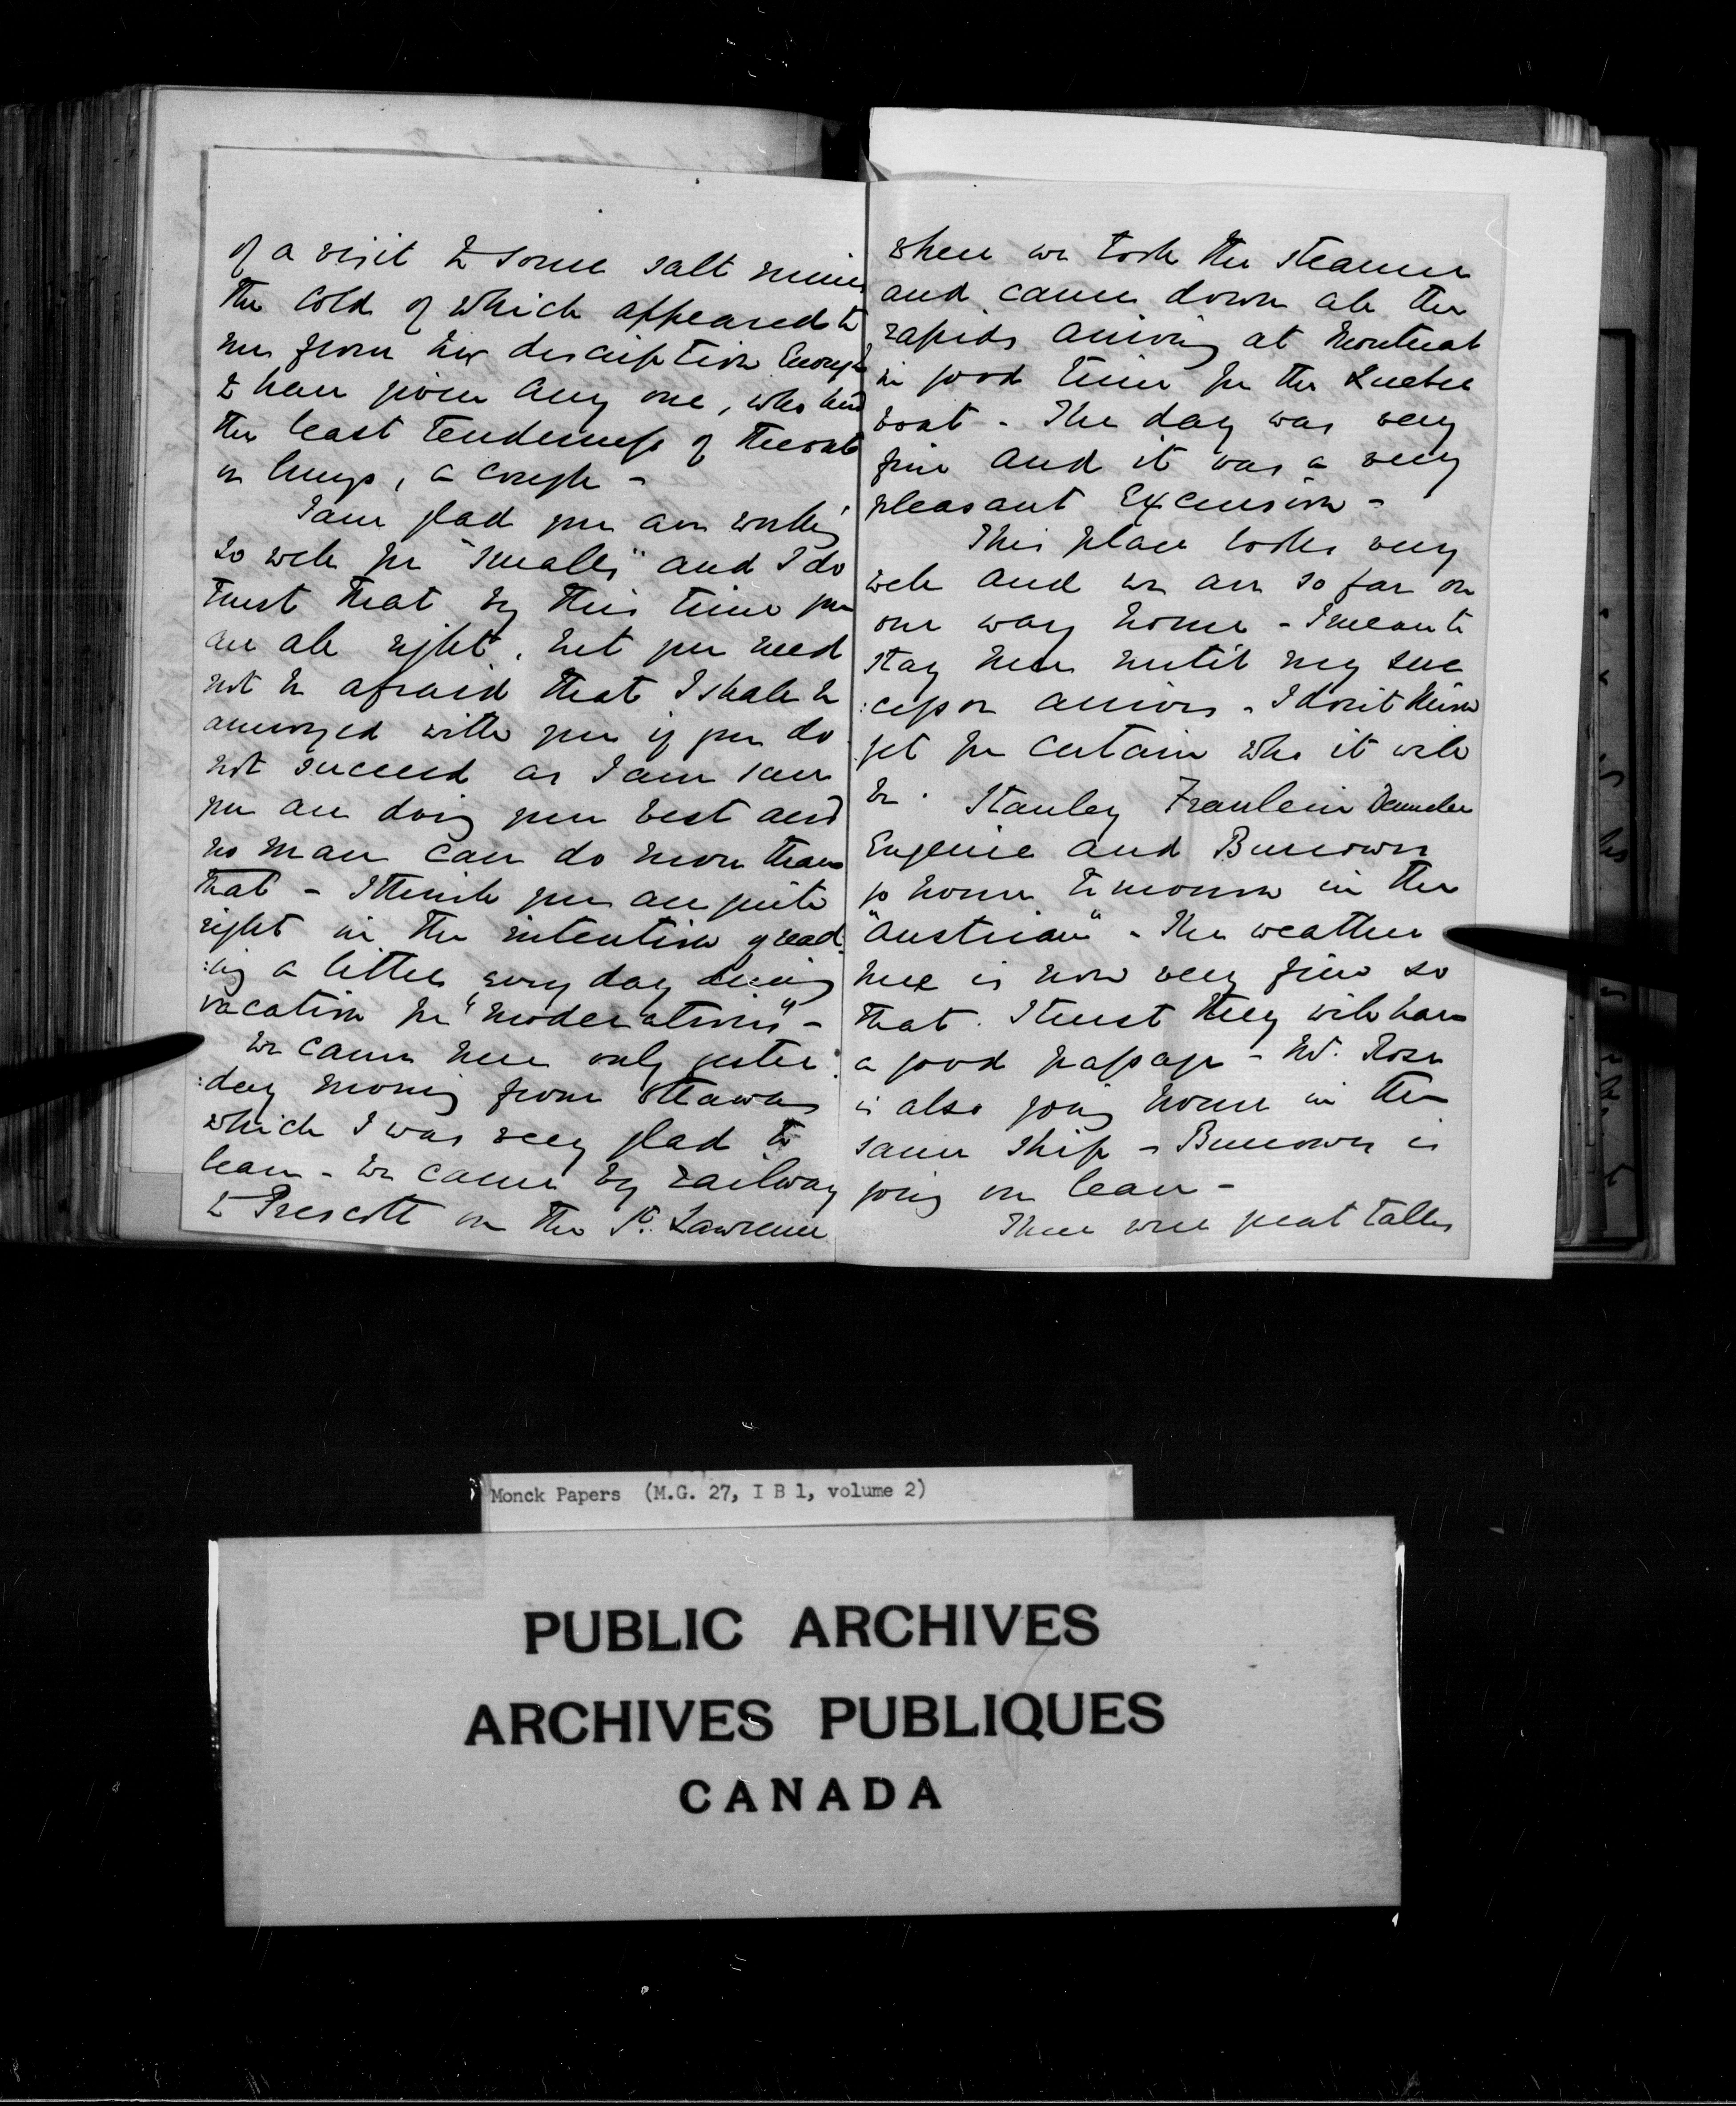 of a visit to some salt mines
the cold of which appeared to
me from her description enough
to have given any one, who had
the least tenderness of throat
or lungs, a cough -
I am glad you are working
so well for "Smalls" and I do
trust that by this time you
are all right, but you need
not be afraid that I shall be
annoyed with you if you do
not succeed as I am sure
you are doing your best and
no man can do more than
that - I think you are quite
right in the intention of read
:ing a little every day during
vacation for "Moderations" -
We came here only yester:
:day morning from Ottawa
which I was very glad to
leave - We came by railway
to Prescott on the St. Lawrence
where we took the steamer
and came down all the
rapids arriving at Montreal
in good time for the Quebec
boat - The day was very
fine and it was a very
pleasant excursion -
This place looks very
well and we are so far on
our way home - I mean to
stay here until my suc
:cessor arrives - I don't know
yet for certain who it will
be. Stanley Fraulein
Eugenie and Burrowes
go home tomorrow in the
"Austrian" - The weather
here is now very fine so
that I trust they will have
a good passage - Mr. Rose
is also going home in the
same ship - Burrowes is
going on leave -
There were great talks
Monck Papers (M.G. 27, I B 1, volume 2)
PUBLIC ARCHIVES
ARCHIVES PUBLIQUES
CANADA